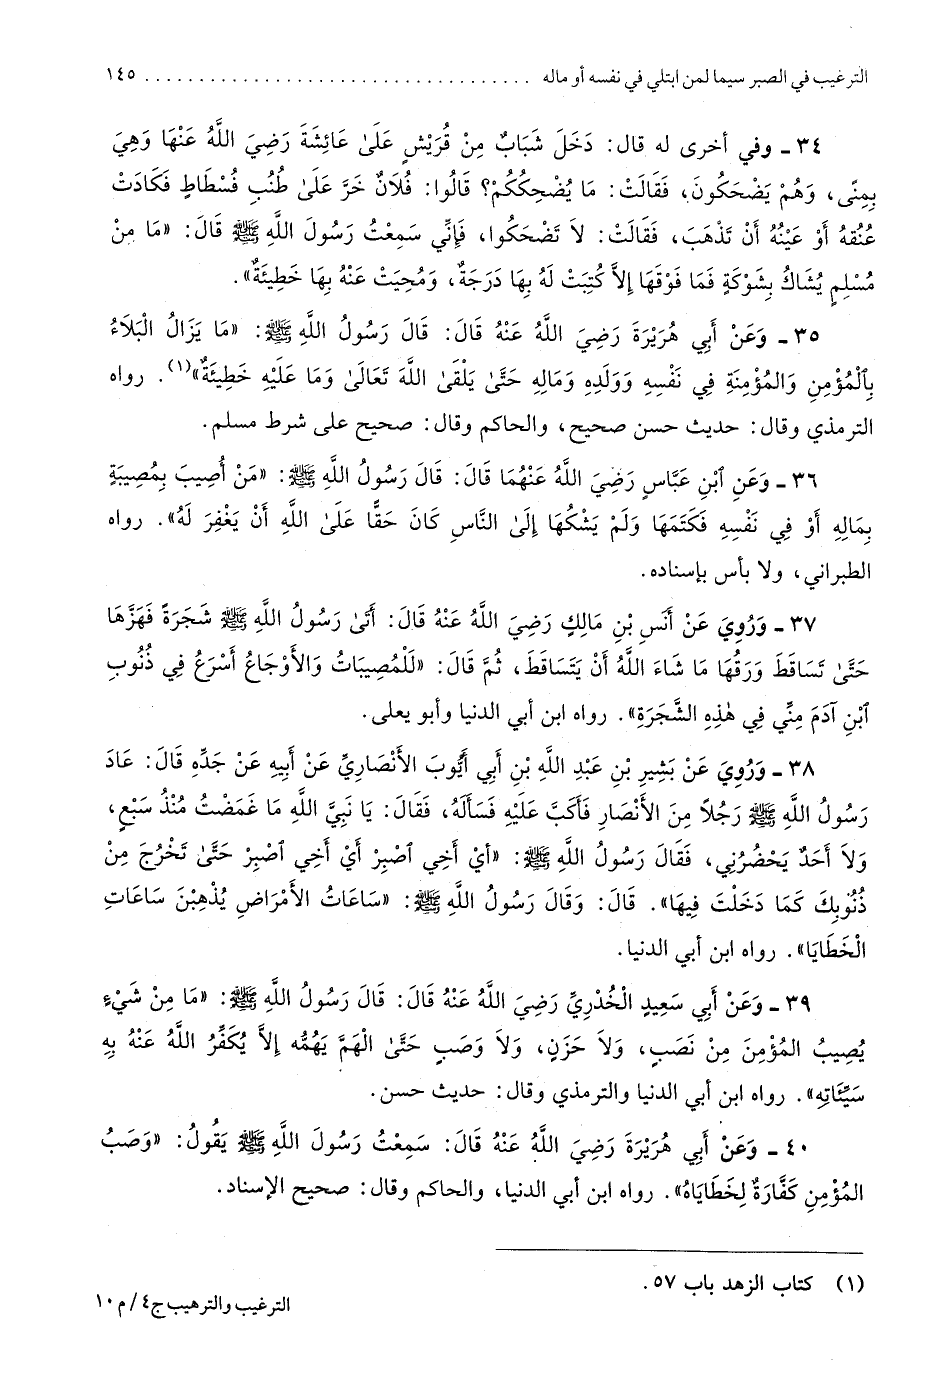 الترغيب في الصبر سيما لمن ابتلي في نفسه أو ماله ..................................... ١٤٥
٣٤ ـ وفي أخرى له قال: دَخَلَ شَبَابٌ مِنْ قُرَيْشٍ عَلَىٰ عَائِشَةَ رَضِيَ اللَّهُ عَنْهَا وَهِيَ
بِمِنًى، وَهُمْ يَضْحَكُونَ، فَقَالَتْ: مَا يُضْحِكُكُمْ؟ قَالُوا: فُلَانٌ خَرَّ عَلَىٰ طُنُبِ فُسْطَاطٍ فَكَادَتْ
عُنُقُهُ أَوْ عَيْنُهُ أَنْ تَذْهَبَ، فَقَالَتْ: لَا تَضْحَكُوا، فَإِنِّي سَمِعْتُ رَسُولَ اللَّهِ ﷺ قَالَ: «مَا مِنْ
مُسْلِمٍ يُشَاكُ بِشَوْكَةٍ فَمَا فَوْقَهَا إِلاَّ كُتِبَتْ لَهُ بِهَا دَرَجَةٌ، وَمُحِيَتْ عَنْهُ بِهَا خَطِيئَةٌ».
٣٥ ـ وَعَنْ أَبِي هُرَيْرَةَ رَضِيَ اللَّهُ عَنْهُ قَالَ: قَالَ رَسُولُ اللَّهِ ﷺ: «مَا يَزَالُ الْبَلَاءُ
بِٱلْمُؤْمِنِ وَالمُؤْمِنَةِ فِي نَفْسِهِ وَوَلَدِهِ وَمَالِهِ حَتَّىٰ يَلْقَىٰ اللَّهَ تَعَالَىٰ وَمَا عَلَيْهِ خَطِيئَةٌ»(١). رواه
الترمذي وقال: حديث حسن صحيح، والحاكم وقال: صحيح على شرط مسلم.
٣٦ ـ وَعَنِ ٱبْنِ عَبَّاسٍ رَضِيَ اللَّهُ عَنْهُمَا قَالَ: قَالَ رَسُولُ اللَّهِ ﷺ: «مَنْ أُصِيبَ بِمُصِيبَةٍ
بِمَالِهِ أَوْ فِي نَفْسِهِ فَكَتَمَهَا وَلَمْ يَشْكُهَا إِلَىٰ النَّاسِ كَانَ حَقًّا عَلَىٰ اللَّهِ أَنْ يَغْفِرَ لَهُ». رواه
الطبراني، ولا بأس بإسناده.
٣٧ ـ وَرُوِيَ عَنْ أَنَسِ بْنِ مَالِكٍ رَضِيَ اللَّهُ عَنْهُ قَالَ: أَتَىٰ رَسُولُ اللَّهِ ﷺ شَجَرَةً فَهَزَّهَا
حَتَّىٰ تَسَاقَطَ وَرَقُهَا مَا شَاءَ اللَّهُ أَنْ يَتَسَاقَطَ، ثُمَّ قَالَ: «لَلْمُصِيبَاتُ وَالأَوْجَاعُ أَسْرَعُ فِي ذُنُوبِ
ٱبْنِ آدَمَ مِنِّي فِي هٰذِهِ الشَّجَرَةِ». رواه ابن أبي الدنيا وأبو يعلى.
٣٨ ـ وَرُوِيَ عَنْ بَشِيرِ بْنِ عَبْدِ اللَّهِ بْنِ أَبِي أَيُّوبَ الأَنْصَارِيِّ عَنْ أَبِيهِ عَنْ جَدِّهِ قَالَ: عَادَ
رَسُولُ اللَّهِ ﷺ رَجُلاً مِنَ الأَنْصَارِ فَأَكَبَّ عَلَيْهِ فَسَأَلَهُ، فَقَالَ: يَا نَبِيَّ اللَّهِ مَا غَمَضْتُ مُنْذُ سَبْعٍ،
وَلاَ أَحَدٌ يَحْضُرُنِي، فَقَالَ رَسُولُ اللَّهِ ﷺ: «أَيْ أَخِي ٱصْبِرْ أَيْ أَخِي ٱصْبِرْ حَتَّىٰ تَخْرُجَ مِنْ
ذُنُوبِكَ كَمَا دَخَلْتَ فِيهَا». قَالَ: وَقَالَ رَسُولُ اللَّهِ ﷺ: «سَاعَاتُ الأَمْرَاضِ يُذْهِبْنَ سَاعَاتِ
الْخَطَايَا». رواه ابن أبي الدنيا.
٣٩ ـ وَعَنْ أَبِي سَعِيدٍ الْخُدْرِيِّ رَضِيَ اللَّهُ عَنْهُ قَالَ: قَالَ رَسُولُ اللَّهِ ﷺ: «مَا مِنْ شَيْءٍ
يُصِيبُ المُؤْمِنَ مِنْ نَصَبٍ، وَلاَ حَزَنٍ، وَلاَ وَصَبٍ حَتَّىٰ الْهَمَّ يَهُمُّه إِلاَّ يُكَفِّرُ اللَّهُ عَنْهُ بِهِ
سَيِّئَاتِهِ». رواه ابن أبي الدنيا والترمذي وقال: حديث حسن.
٤٠ ـ وَعَنْ أَبِي هُرَيْرَةَ رَضِيَ اللَّهُ عَنْهُ قَالَ: سَمِعْتُ رَسُولَ اللَّهِ ﷺ يَقُولُ: «وَصَبُ
المُؤْمِنِ كَفَّارَةٌ لِخَطَايَاهُ». رواه ابن أبي الدنيا، والحاكم وقال: صحيح الإسناد.
(١) كتاب الزهد باب ٥٧.
الترغيب والترهيب ج٤ / م ١٠